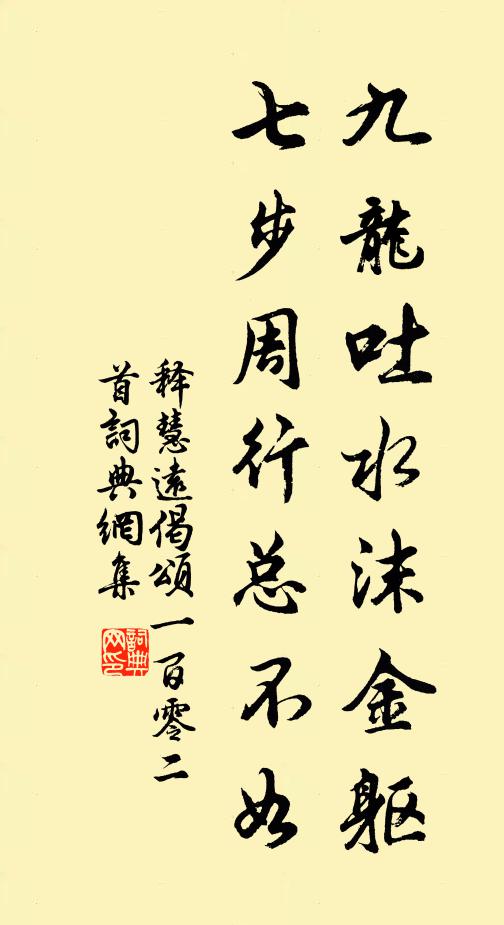 九龍吐水沫金躯
七步周行总不如
释慧遠偈頌一百零二
首詞典網集
詞典网印